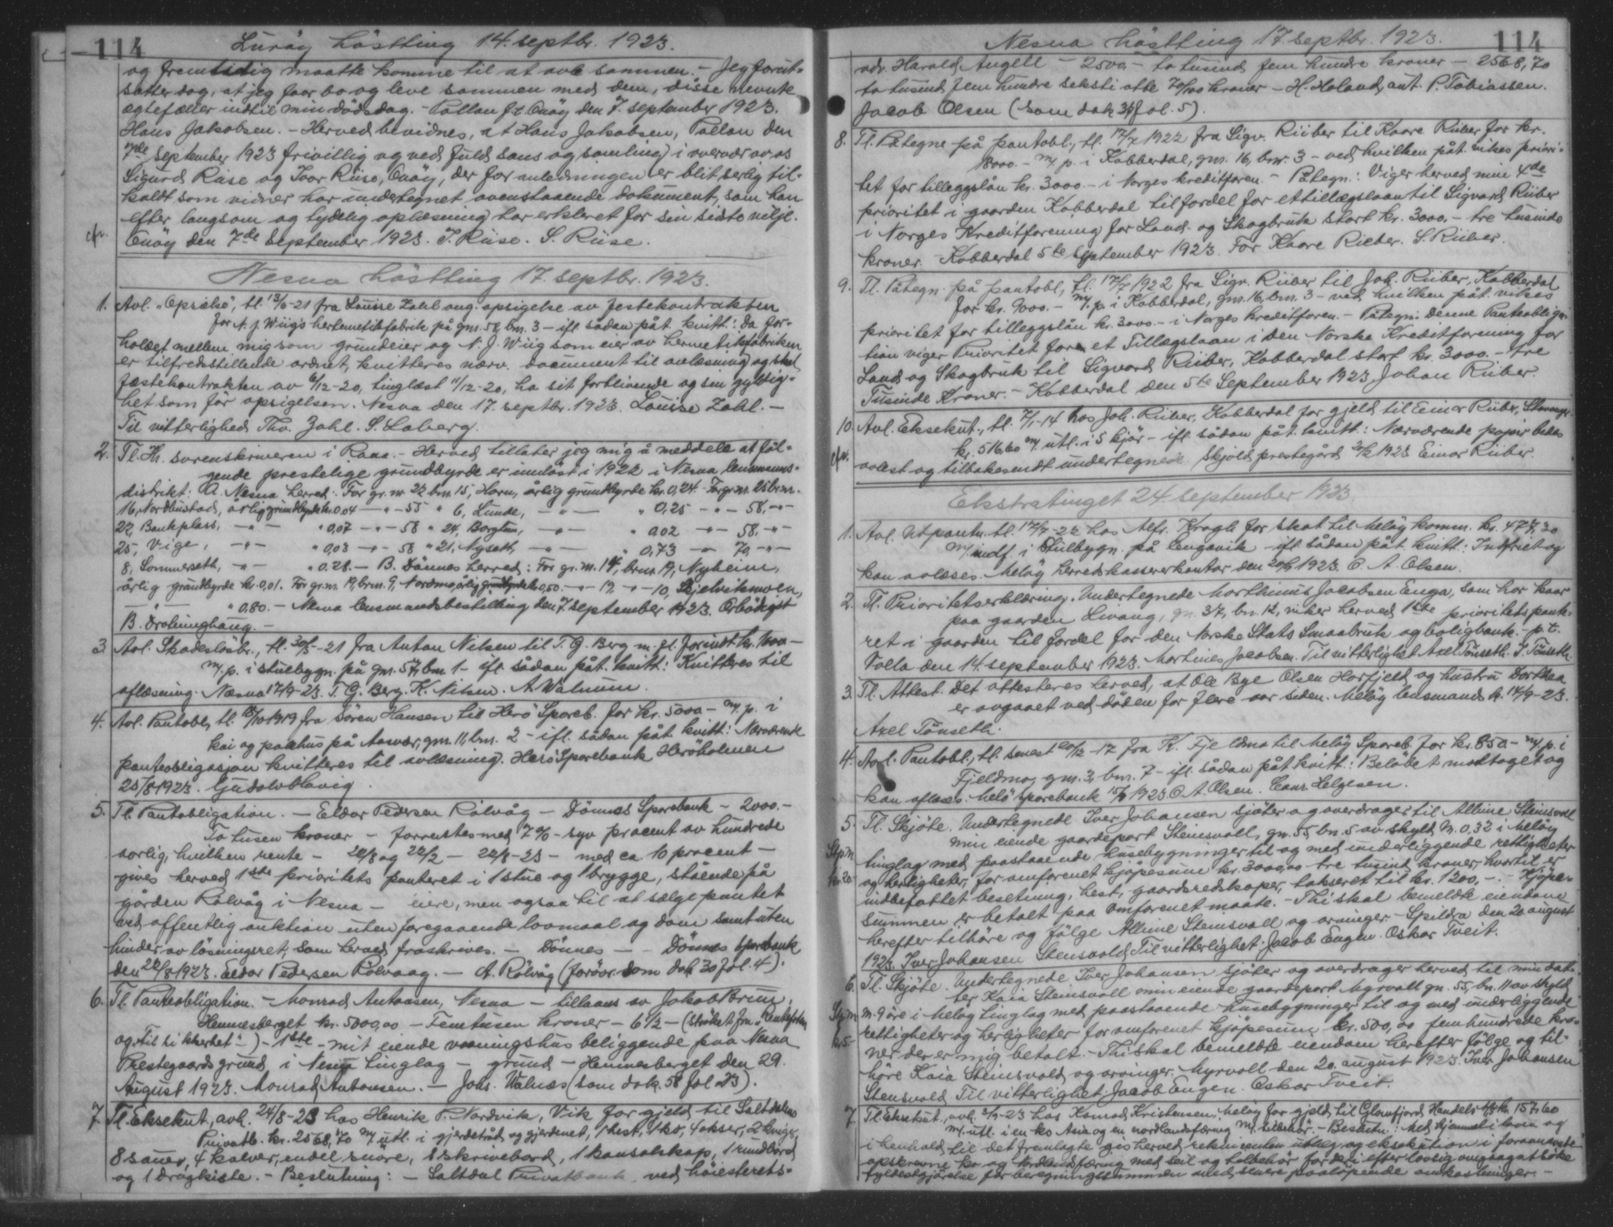 114
Luröy höstting 14. septbr. 1923.
og fremtidig maatte komme til at avle sammen. - Jeg forut-
setter dog, at jeg faar bo og leve sammen med dem, disse nevnte
egtefæller indtil min dödsdag. - Pollan, Onöy den 7. september 1923.
Hans Jakobsen. - Herved bevidnes, at Hans Jakobsen, Pollan den
7de september 1923 frivillig og ved fuld sans og samling i overvær av os
Sigurd Riise og Ivar Riise, Onöy, der for anledningen er blit særlig til-
kaldt som vidner har undertegnet ovenstaaende dokument, som han
efter langsom og tydelig oplæsning har erklæret for sin sidste vilje.
cfr. Onöy den 7de September 1923. I. Riise. S. Riise.
Nesna höstting 17. septbr. 1923.
1. Avl. "Opsielse", tl. 13/6-21 fra Louise Zahl ang. opsigelse av festekontrakten
for N. J. Wiigs hermetikfabrik på gnr. 56 bnr. 3 - ifl. sådan påt. kvitt: Da for-
holdet mellem mig som grundeier og N. J. Wiig som eier av hermetikfabriken
er tilfredsstillende ordnet, kvitteres nærv. document til avlæsning og skal
festekontrakten av 6/12-20, tinglæst 11/12-20, ha sit forblivende og sin gyldig-
het som för opsigelsen. Nesna den 17. septbr. 1923. Louise Zahl. -
Til vitterlighed Tho. Zahl. S. Laberg.
2. Tl. Hr. sorenskriveren i Rana. - Herved tillater jeg mig å meddele at föl-
gende prestelige grundbyrde er innlöst i 1922 i Nesna lensmanns-
distrikt: A. Nesna herred: For gr. nr. 22 bnr. 15, Haven, årlig grundbyrde kr. 0,24. For gr. nr. 25 br. nr.
16, Nordbustad, årlig grundbyrde kr. 0,04 - " - 55 " 6, Lunde, - " - " 0,25 - " - 56, - " -
22, Bankplass, - " - " 0,07 - " - 56 " 24, Borgtun, - " - 0,02 - " - 58, - " -
25, Vige, - " - " 0,03 - " - 56 " 21, Nyseth, - " - " 0,73 - " - 70, - " -
8, Sommerseth, - " - " 0,28 - B. Dönnes herred: For gr. nr. 14, brnr. 19, Nyheim,
årlig grundbyrde kr. 0,01. For gr. nr. 19, brnr. 9, Nordmo, årlig grundbyrde kr. 0,50. - " - 19 - " - 10, Skjelvikmoen,
- " - " 0,80. - Nesna lensmandsbestilling den 7. september 1923. Ærbödigst
B. Dröivinghaug. -
3. Avl. Skadeslösbr., tl. 30/5-21 fra Anton Nilsen til T. G. Berg m. fl. for
m. p. i stuebygn. på gnr. 57, bnr. 1 - ifl. sådan påt. kvitt: Kvitteres til
aflæsning. Næsna 17/9-23. T. G. Berg. K. Nilsen. A. Walnum.
4. Avl. Pantobl., tl. 1919 fra Sören Hansen til Herö Spareb. for kr. 5000 - m. p. i
kai og pakhus på Aasvær, gnr. 11, bnr. 2 - ifl. sådan påt. kvitt: Nærværende
panteobligasjon kvitteres til avlæsning. Herö Sparebank Heröholmen
25/8 1923. Gudolv Blavig.
5. Tl. Pantobligation. - Eldor Pedersen Rölvåg - Dönnes Sparebank - 2000.-
To tusen kroner - forrentes med 7 % - syv procent av hundrede
aarlig, hvilken rente - 22/8 og 22/2 - 22/8-23 - med ca. 10 procent -
gives herved 1ste prioritets panteret i 1 stue og 1 brygge, stående på
gården Rölvåg i Nesna - eiere, men ogsaa til at sælge pantet
ved offentlig auktion uten foregaaende lovmaal og dom samt uten
hinder av lösningsret, som herved fraskrives. - Dönnes - - Dönnes Sparebank
den 22/8 1923. Eldor Pedersen Rölvaag. - A. Rölvåg (forövr. som dok 30 fol. 4).
6. Tl. Panteobligation. - Monrad Antonsen, Nesna - tillaans av Jakob Bruun,
Hemnesberget kr. 5000,00 - Femtusen kroner - 6 1/2 - (strøket fra
og: Til sikkerhet:) - 1ste - mit eiende vaaningshus beliggende paa Nesna
Prestegaards grund i Nesna tinglag - grund - Hemnesberget den 29.
August 1923. Monrad Antonsen. - Johs. Valnæs (som dok. 58 fol. 23).
7. Tl. Eksekut. avh. 24/8-23 hos Henrik P. Nordvik, Vik for gjeld til Saltdalens
Privatb. kr. 2568,70 m/ utl. i gjerdetråd og gjerdenet, 1 hest, 1 ko, 4 okser, 2 kviger,
8 sauer, 4 kalver, endel snöre, 1 skrivebord, 1 kanselskap, 1 rundbord
og 1 dragkiste. - Beslutning: - Saltdal Privatbank ved höiesterets-
114
Nesna höstting 17. septbr. 1923.
adv. Harald Angell - 2500,- to tusind fem hundre kroner - 2568,70
to tusind fem hundre seksti otte 70/100 kroner - H. Höland, aut. P. Tobiassen.
Jacob Olsen (som dok 38 fol. 5).
8. Tl. Påtegn. på pantobl., tl. 17/7 1922 fra Sigv. Riiber til Kaare Riiber for kr.
- m. p. i Kobberdal, gnr. 16, bnr. 3 - ved hvilken påt. vikes priori-
tet for tilleggslån kr. 3000 - i Norges kreditforen. - Påtegn: Viger herved min 4de
prioritet i gaarden Kobberdal til fordel for et tillægslaan til Sigvard Riiber
i Norges Kreditforening for Land- og Skogbruk stort Kr. 3000.- tre tusinde
kroner. Kobberdal 5te September 1923. For Kaare Riiber. S. Riiber.
9. Tl. Påtegn. på pantobl., tl. 17/7 1922 fra Sigv. Riiber til Joh. Riiber, Kobberdal
for kr. 9000.- m. p. i Kobberdal, gnr. 16, bnr. 3 - ved hvilken påt. vikes
prioritet for tilleggslån kr. 3000.- i Norges Kreditforen. - Påtegn: Denne Panteobliga-
tion viger Prioritet for et Tillægslaan i den Norske Kreditforening for
Land og Skogbruk til Sigvard Riiber, Kobberdal stort kr. 3000.- tre
Tusinde Kroner. - Kobberdal den 5te September 1923 Johan Riiber.
10. Avl. Eksekut., tl. 7/1-14 hos Joh. Riiber, Kobberdal for gjeld til Einar Riiber,
cfr. kr. 516,60 m/ utl. i 5 kjör - ifl. sådan påt. kvitt: Nærværende papir bedes
avlest og tilbakesendt undertegnede. Skjold prestegård 1923 Einar Riiber.
Ekstratinget 24 september 1923.
1. Avl. Utpantn. tl. 17/7-22 hos Alfr. Krogh for skat til Melöy komm. kr. 477,30
m/ utl. i stuebygn. på Enganvik ifl. sådan påt. kvitt: Indfriet og
kan avlæses. Melöy Herredskassererkontor den 20/9 1923. O. A. Olsen.
2. Tl. Prioritetserklæring. Undertegnede Marthinus Jacobsen Enga, som har kaar
paa gaarden Livang, gn. 37, bn. 12, viker herved 1ste prioritets pante-
ret i gaarden til fordel for den Norske Stats Smaabruk og boligbank. - p. t.
Volla den 14 september 1923. Martines Jacobsen. Til vitterlighet Axel Tönseth. S. Tönseth.
3. Tl. Attest. Det attesteres herved, at Ole Bye Olsen Horsfjeld og hustru Dorthea
er avgaaet ved döden for flere aar siden. Melöy lensmand k. 14/9-23.
Axel Tönseth.
4. Avl. Pantobl., tl. senest 20/12-17 fra K. Fjeldmo til Melöy Spareb. for kr. 850 - m. p. i
Fjeldmo, gnr. 3, bnr. 7 - ifl. sådan påt. kvitt: Belöbet modtaget og
kan aflæses. Melö Sparebank 15/9 1923 O. A. Olsen. Hans Helgesen.
5. Tl. Skjöte. Undertegnede Iver Johansen skjöter og overdrager til Alline Stensvoll
min eiende gaardepart Stensvoll, gn. 55 bn. 5 av skyld M. 0,32 i Melöy
tinglag med paastaaende husebygninger til og med underliggende rettigheter
og herligheter, for omforenet kjöpesum kr. 3000,00 tre tusind kroner, hvortil er
indbefattet besetning, hest, gaardsredskaper, takseret til kr. 1200,- - Kjöpe-
summen er betalt paa omforenet maate. - Thi skal bemeldte eiendom
herefter tilhöre og fölge Alline Steinsvoll og arvinger - Spildra den 20 august
1923. Iver Johansen Stensvold. Til vitterlighet: Jacob Engen. Oskar Tveit.
6. Tl. Skjöte. Undertegnede Iver Johansen skjöter og overdrager herved til min dat-
ter Kaia Steinsvoll min eiende gaardepart Myrvoll gn. 55, bn. 11 av skyld
m. 9 öre i Melöy tinglag med paastaaende husebygninger til og med underliggende
rettigheter og herligheter for omforenet kjöpesum kr. 500,00 fem hundrede kro-
ner der er mig betalt. - Thi skal bemeldte eiendom herefter fölge og til-
höre Kaia Steinsvold og arvinger. Myrvoll den 20. august 1923. Iver Johansen
Stensvold. Til vitterlighet Jacob Engen. Oskar Tveit.
7. Tl. Eksekut. avh. 3/9-23 hos Konrad Kristensen, Melöy for gjeld til Glomfjord Handels kr. 157,60
m/ utl. i en ko Aura og en nordlandsfæring m/ tilbehör. - Beslutn: Med hjemmel i lov og
i henhold til det fremlagte gis herved rekvirenten utlæg og eksekution i foranevnte
opskrevne ko og nordlandsfæring med seil og tilbehör for deri efter lovlig omgaaet söke
fyldestgjörelse for beregningssummen med senere paalöpende omkostninger. -